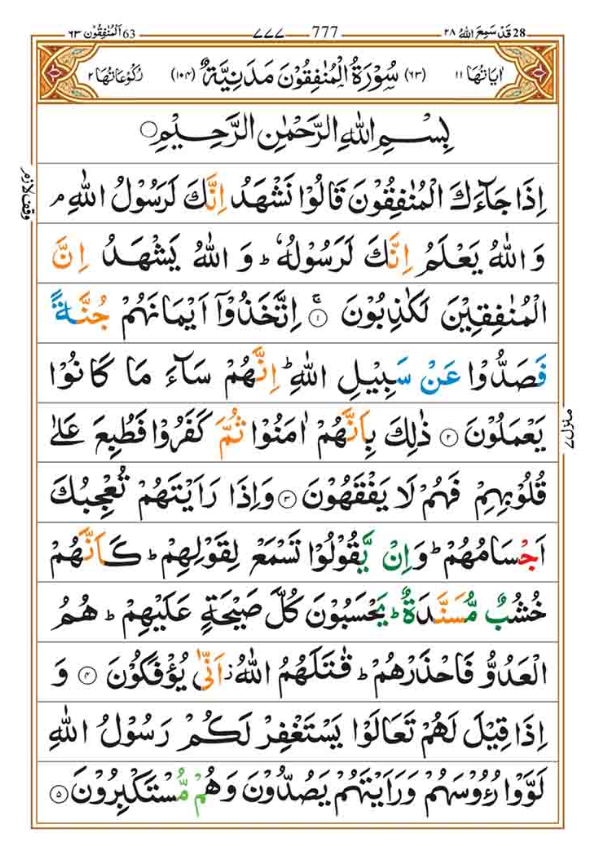 28 قَدْ سَمِعَ اللّٰهُ ٢٨ 777 ٧٧٧ 63 اَلْمُنٰفِقُوْن ٦٣
اٰيَاتُهَا ١١ (٦٣) سُوْرَةُ الْمُنٰفِقُوْنَ مَدَنِيَّةٌ (١٠٤) رُكُوْعَاتُهَا ٢
بِسْمِ اللّٰهِ الرَّحْمٰنِ الرَّحِيْمِ
اِذَا جَآءَكَ الْمُنٰفِقُوْنَ قَالُوْا نَشْهَدُ اِنَّكَ لَرَسُوْلُ اللّٰهِ ۘ
وقف لازم
وَ اللّٰهُ يَعْلَمُ اِنَّكَ لَرَسُوْلُهٗ ؕ وَ اللّٰهُ يَشْهَدُ اِنَّ
الْمُنٰفِقِيْنَ لَكٰذِبُوْنَ ۚ ﴿١﴾ اِتَّخَذُوْۤا اَيْمَانَهُمْ جُنَّةً
فَصَدُّوْا عَنْ سَبِيْلِ اللّٰهِ ؕ اِنَّهُمْ سَآءَ مَا كَانُوْا
يَعْمَلُوْنَ ﴿٢﴾ ذٰلِكَ بِاَنَّهُمْ اٰمَنُوْا ثُمَّ كَفَرُوْا فَطُبِعَ عَلٰى
منزل ٧
قُلُوْبِهِمْ فَهُمْ لَا يَفْقَهُوْنَ ﴿٣﴾ وَ اِذَا رَاَيْتَهُمْ تُعْجِبُكَ
اَجْسَامُهُمْ ؕ وَ اِنْ يَّقُوْلُوْا تَسْمَعْ لِقَوْلِهِمْ ؕ كَاَنَّهُمْ
خُشُبٌ مُّسَنَّدَةٌ ؕ يَحْسَبُوْنَ كُلَّ صَيْحَةٍ عَلَيْهِمْ ؕ هُمُ
الْعَدُوُّ فَاحْذَرْهُمْ ؕ قٰتَلَهُمُ اللّٰهُ ؗ اَنّٰى يُؤْفَكُوْنَ ﴿٤﴾ وَ
اِذَا قِيْلَ لَهُمْ تَعَالَوْا يَسْتَغْفِرْ لَكُمْ رَسُوْلُ اللّٰهِ
لَوَّوْا رُءُوْسَهُمْ وَ رَاَيْتَهُمْ يَصُدُّوْنَ وَ هُمْ مُّسْتَكْبِرُوْنَ ﴿٥﴾